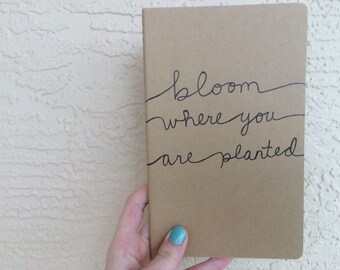 bloom
where you
are planted